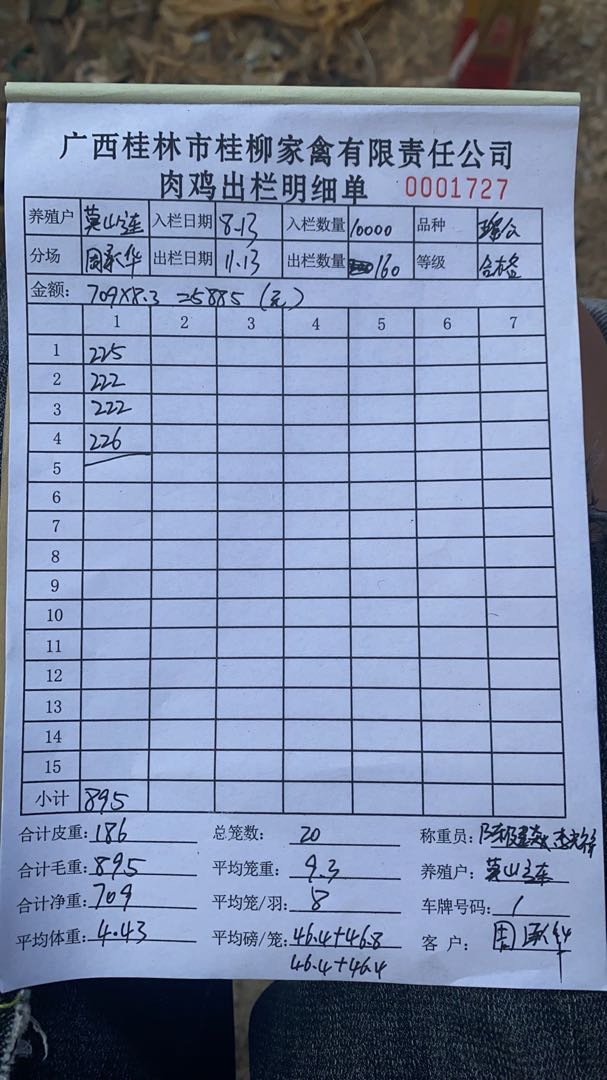 广西桂林市桂柳家禽有限责任公司
肉鸡出栏明细单 0001727
养殖户 莫山连 入栏日期 8.13 入栏数量 10000 品种
分场 周承华 出栏日期 11.13 出栏数量 160 等级 合格
金额: 709×8.3 =5885 (元)
1 2 3 4 5 6 7
1 225
2 222
3 222
4 226
5
6
7
8
9
10
11
12
13
14
15
小计 895
合计皮重: 186 总笼数: 20 称重员:
合计毛重: 895 平均笼重: 9.3 养殖户: 莫山连
合计净重: 709 平均笼/羽: 8 车牌号码: 1
平均体重: 4.43 平均磅/笼: 46.4+46.8 客户: 周承华
46.4+46.4